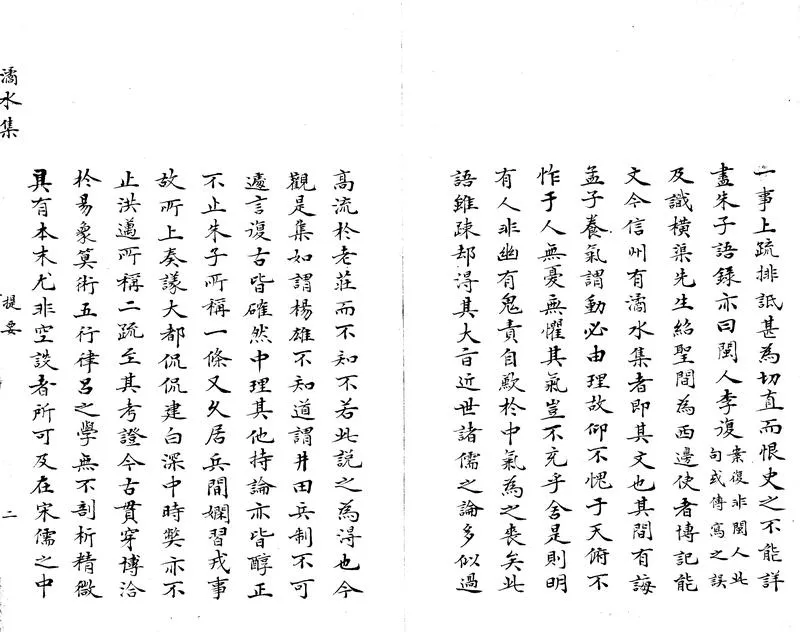 二事上疏排詆甚為切直而恨史之不能詳
盡朱子語錄亦曰閩人李復案復非閩人此句或傳寫之誤
及識橫渠先生紹聖間為西邊使者博記能
文今信州有潏水集者即其文也其間有論
孟子養氣謂動必由理故仰不愧于天俯不
怍于人無憂無懼其氣豈不充乎舍是則明
有人非幽有鬼責自歉於中氣為之喪矣此
語雖疎却得其大旨近世諸儒之論多似過
高流於老莊而不知不若此說之為得也今
觀是集如謂楊雄不知道謂井田兵制不可
遽言復古皆確然中理其他持論亦皆醇正
不止朱子所稱一條又久居兵間嫺習戎事
故所上奏議大都侃侃建白深中時弊亦不
止洪邁所稱二疏至其考證今古貫穿博洽
於易象算術五行律呂之學無不剖析精微
具有本末尤非空談者所可及在宋儒之中
潏水集
提要
二